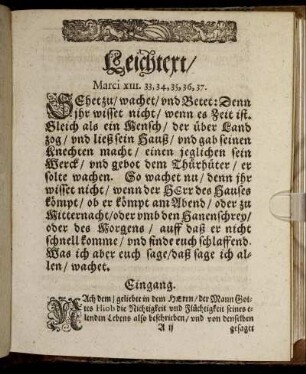 Leichtext/
Marci XIII. 33, 34, 35, 36, 37.
SEhet zu/ wachet/ vnd Betet: Denn
jhr wisset nicht/ wenn es Zeit ist.
Gleich als ein Mensch/ der über Land
zog/ vnd ließ sein Hauß/ vnd gab seinen
Knechten macht/ einen jeglichen sein
Werck/ vnd gebot dem Thürhüter/ er
solte wachen. So wachet nu/ denn jhr
wisset nicht/ wenn der HErr des Hauses
kömpt/ ob er kömpt am Abend/ oder zu
Mitternacht/ oder vmb den Hanenschrey/
oder des Morgens/ auff daß er nicht
schnell komme/ vnd finde euch schlaffend.
Was ich aber euch sage/ daß sage ich al-
len/ wachet.
Eingang.
NAch dem/ geliebte in dem HErrn/ der Mann Got-
tes Hiob die Nichtigkeit vnd Flüchtigkeit seines e-
lenden Lebens also beschrieben/ vnd von denselben
A ij gesaget